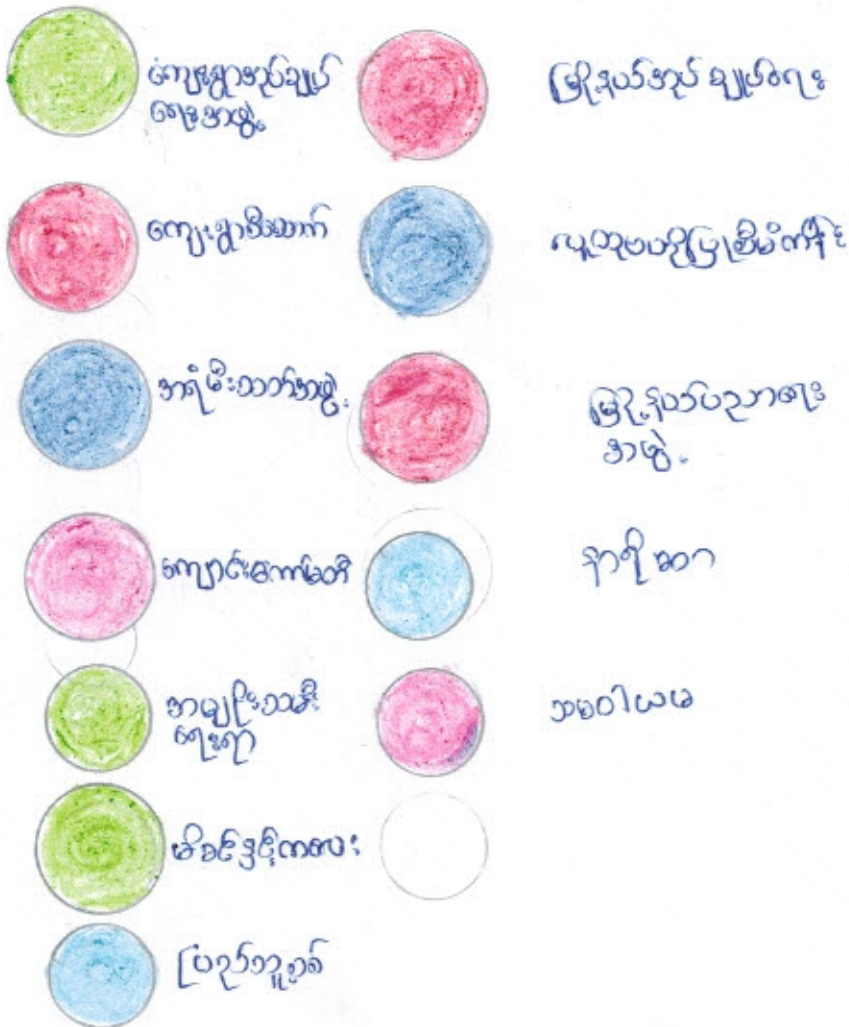 ကျေးရွာအုပ်ချုပ်
ရေးအဖွဲ့
ကျေးရွာစီထောက်
အရံမီးသတ်အဖွဲ့
ကျောင်းကော်မတီ
အမျိုးသမီး
ရေးရာ
မိခင်နှင့်ကလေး
ပြည်သူ့
မြို့နယ်အုပ်ချုပ်ရေး
လူထုဗဟိုပြုစီမံကိန်း
မြို့နယ်ပညာရေး
အဖွဲ့
နာရိုဆာ
သမဝါယမ